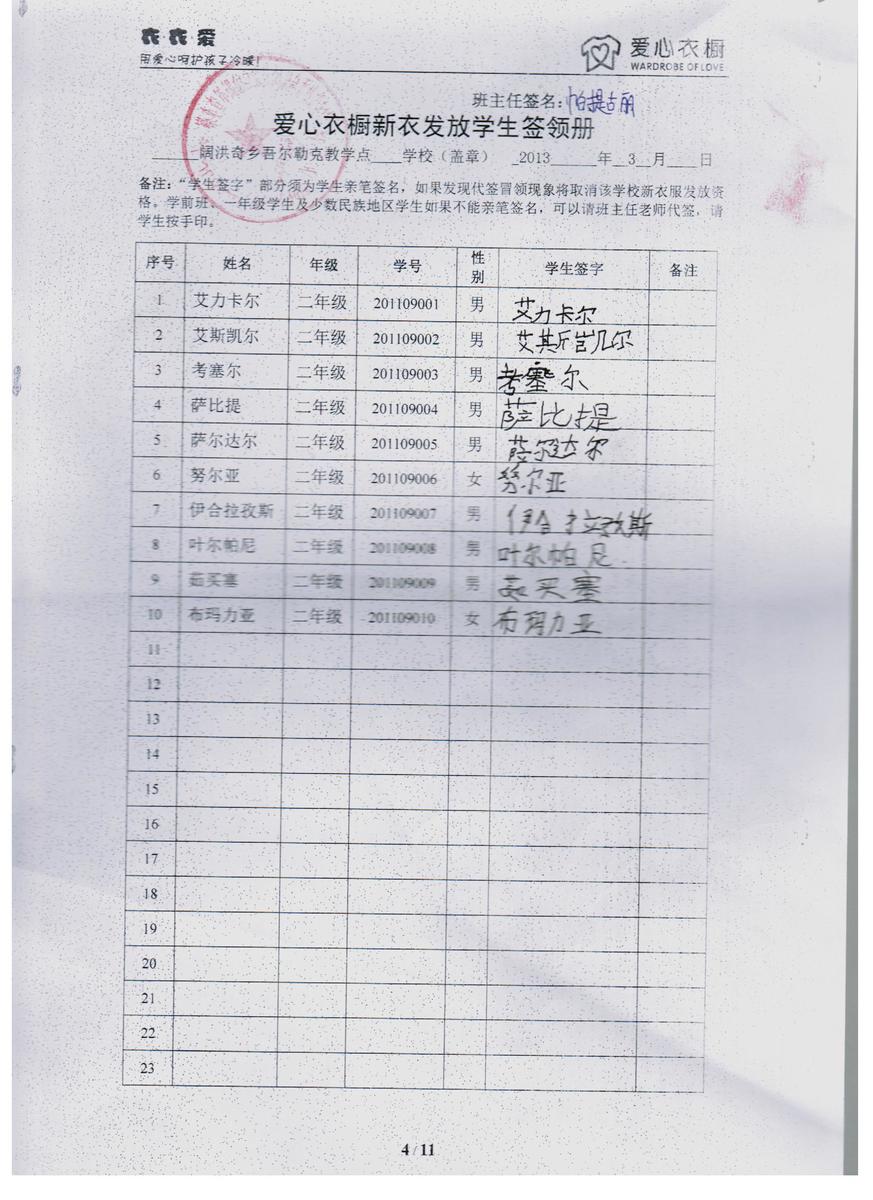 衣衣爱
用爱心呵护孩子冷暖!
爱心衣橱
WARDROBE OF LOVE
班主任签名:帕提古丽
爱心衣橱新衣发放学生签领册
______阔洪奇乡吾尔勒克教学点____学校(盖章) _2013______年_3__月____日
备注:“学生签字”部分须为学生亲笔签名,如果发现代签冒领现象将取消该学校新衣服发放资
格。学前班、一年级学生及少数民族地区学生如果不能亲笔签名,可以请班主任老师代签,请
学生按手印。
序号 姓名 年级 学号 性别 学生签字 备注
1 艾力卡尔 二年级 201109001 男 艾力卡尔
2 艾斯凯尔 二年级 201109002 男 艾其斤岂几尔
3 考塞尔 二年级 201109003 男 考塞尔
4 萨比提 二年级 201109004 男 萨比提
5 萨尔达尔 二年级 201109005 男 萨尔达尔
6 努尔亚 二年级 201109006 女 努尔亚
7 伊合拉孜斯 二年级 201109007 男 伊合拉孜斯
8 叶尔帕尼 二年级 201109008 男 叶尔帕尼
9 茹买塞 二年级 201109009 男 茹买塞
10 布玛力亚 二年级 201109010 女 布玛力亚
11
12
13
14
15
16
17
18
19
20
21
22
23
4 / 11